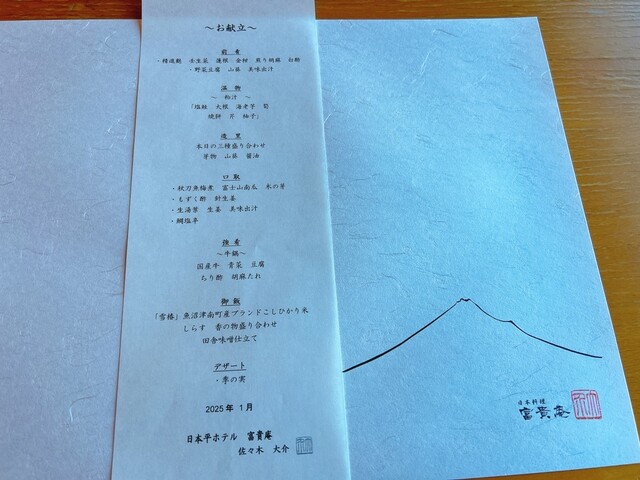 ～お献立～
前肴
・精進麹 壬生菜 蓮根 金柑 煎り胡麻 白酢
・野菜豆腐 山葵 美味出汁
温物
～ 粕汁 ～
「塩鮭 大根 海老芋 筍
焼餅 片 柚子」
本日の三種盛り合わせ
芽物 山葵 醤油
口取
・秋刀魚梅煮 富士山南瓜 木の芽
・もずく酢 針生姜
・生湯葉 生姜 美味出汁
・鯛塩辛
強肴
～牛鍋～
国産牛 青菜 豆腐
ちり酢 胡麻たれ
御飯
「雪椿」魚沼津南町産ブランドこしひかり米
しらす 香の物盛り合わせ
田舎味噌仕立て
デザート
・季の実
2025年 1月
日本平ホテル 富貴庵
佐々木 大介
日本料理
富貴庵